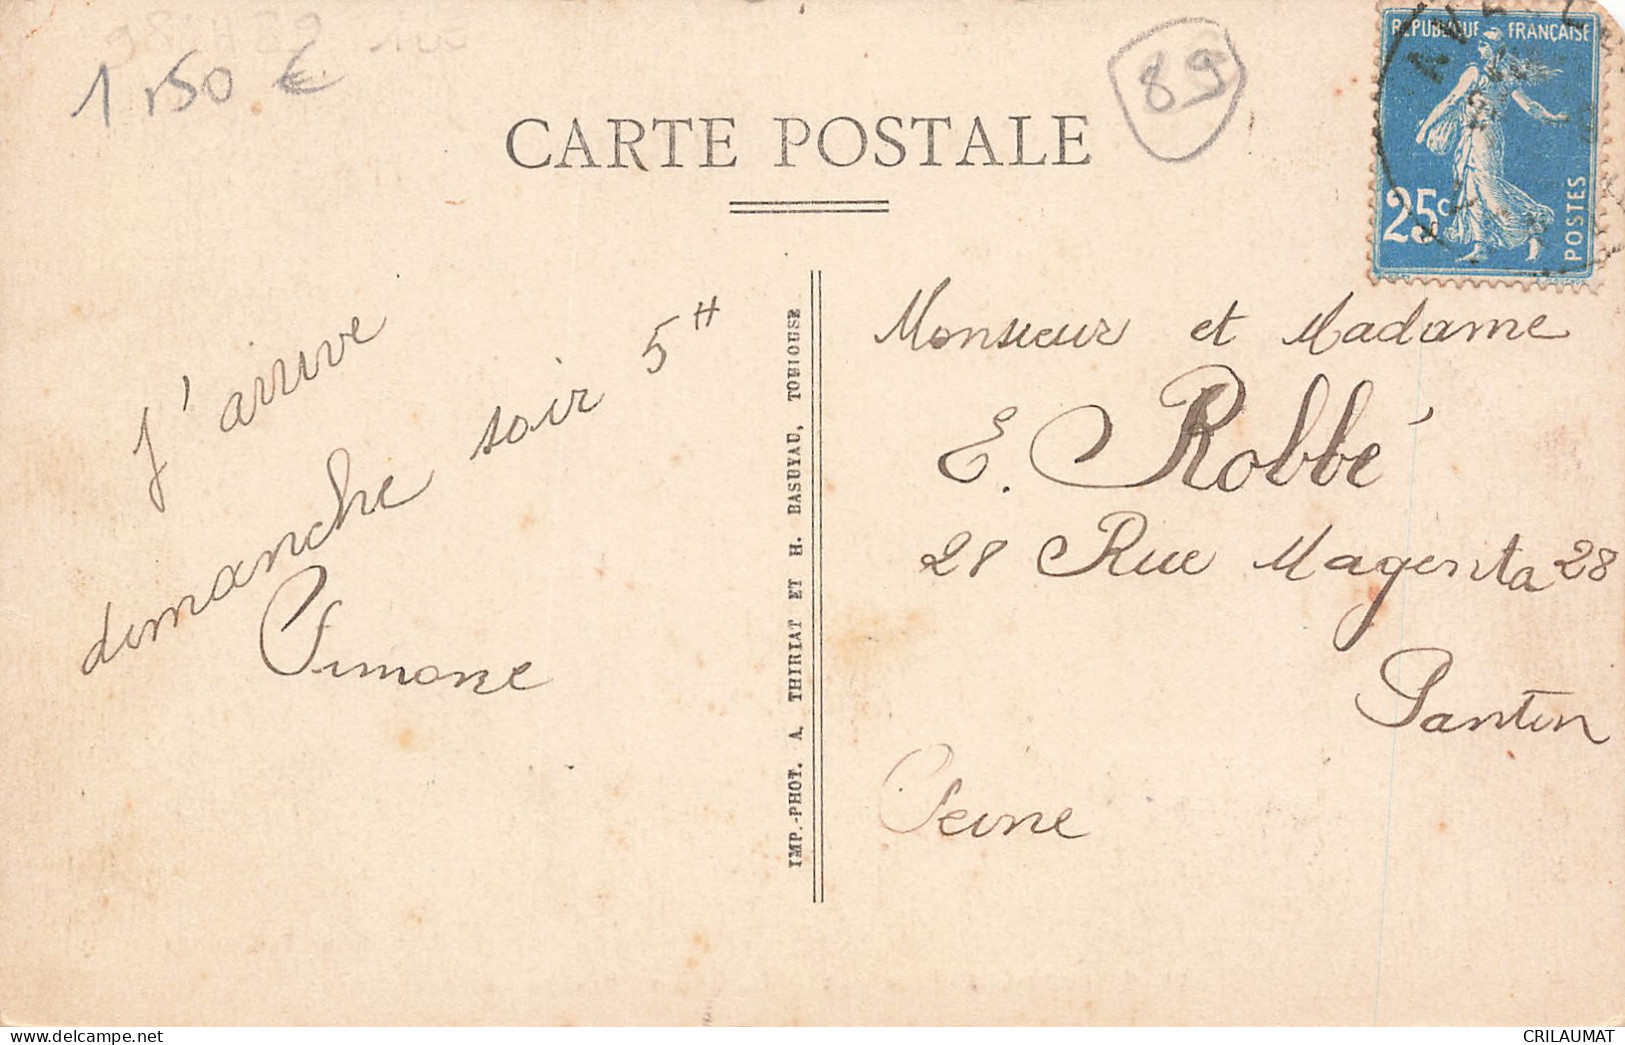 1,50 €
89
CARTE POSTALE
REPUBLIQUE FRANÇAISE
25c
POSTES
J'arrive
dimanche soir 5H
Simone
IMP.-PHOT. A. THIRIAT ET H. BASUYAU, TOULOUSE
Monsieur et Madame
E. Robbé
28 Rue Magenta 28
Pantin
Seine
delcampe.net
CRILAUMAT